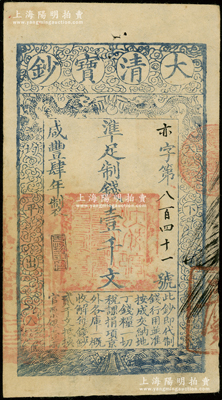 上海陽明拍賣
大清寶鈔
亦字第八百四十一號
準足制錢壹千文
咸豐肆年製
此鈔即代制
錢行用並准
按成交納地
丁錢糧一切
稅課捐項京
外各庫一概
收解每錢鈔
上海陽明拍賣